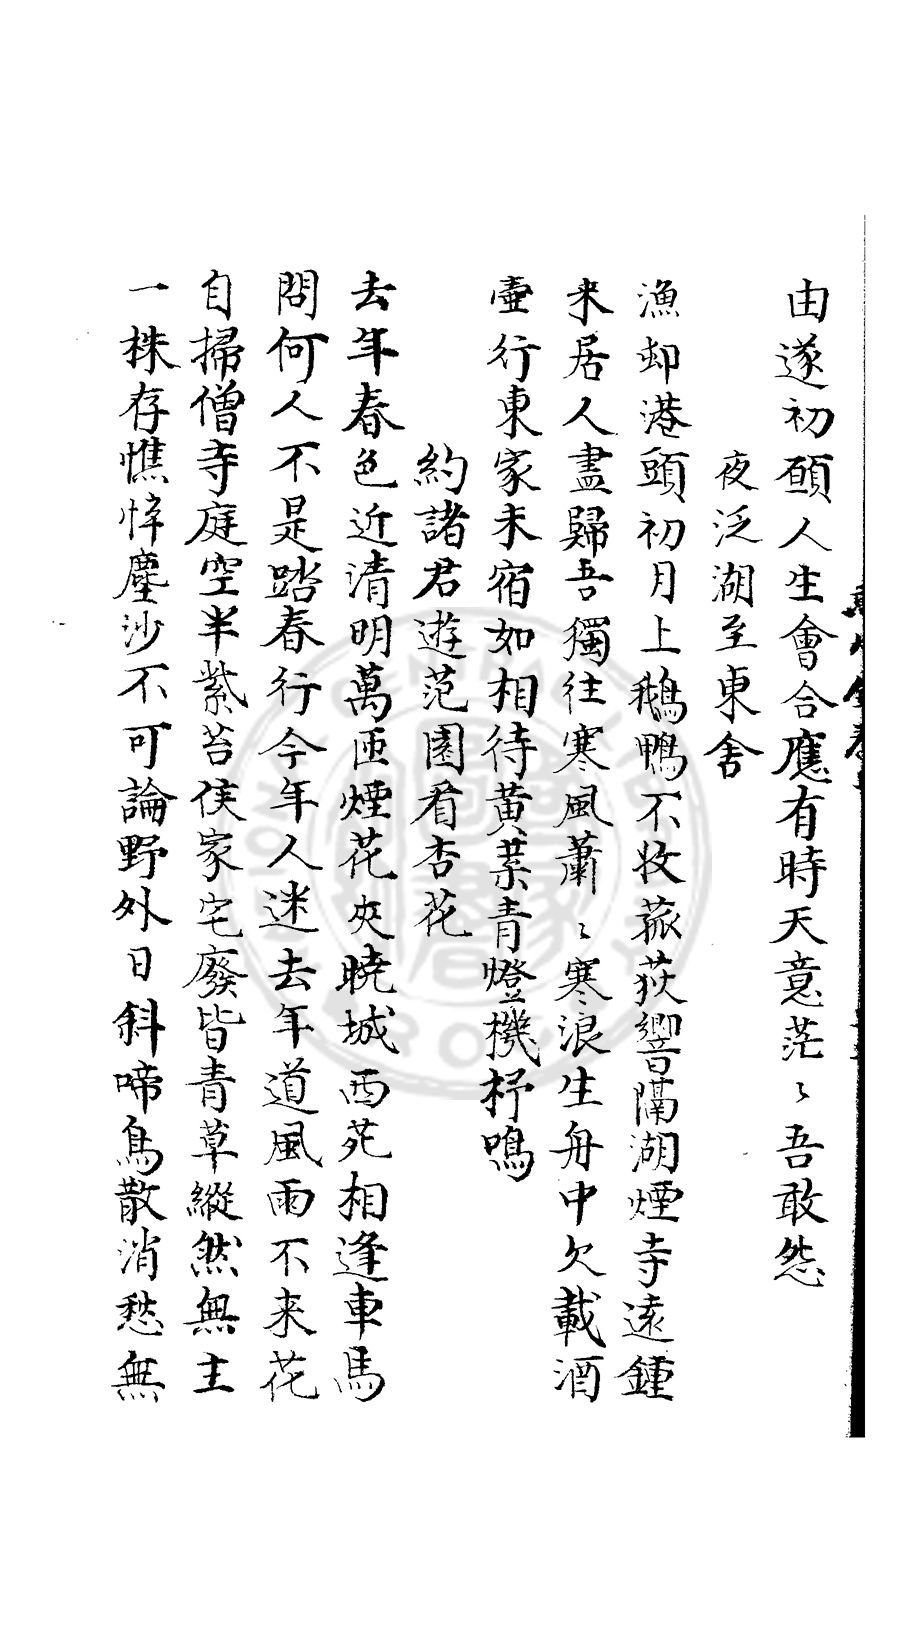 由遂初願人生會合應有時天意茫〻吾敢怨
夜泛湖至東舍
漁却港頭初月上鵝鴨不收菰荻響隔湖煙寺遠鍾
来居人盡歸吾獨往寒風蕭〻寒浪生舟中欠載酒
壷行東家未宿如相待黄葉青燈機杼鳴
約諸君遊范園看杏花
去年春色近清明萬匝煙花夾曉城西苑相逢車馬
問何人不是踏春行今年人迷去年道風雨不来花
自掃僧寺庭空半紫苔侯家宅廢皆青草縱然無主
一株存憔悴塵沙不可論野外日斜啼鳥散消愁無